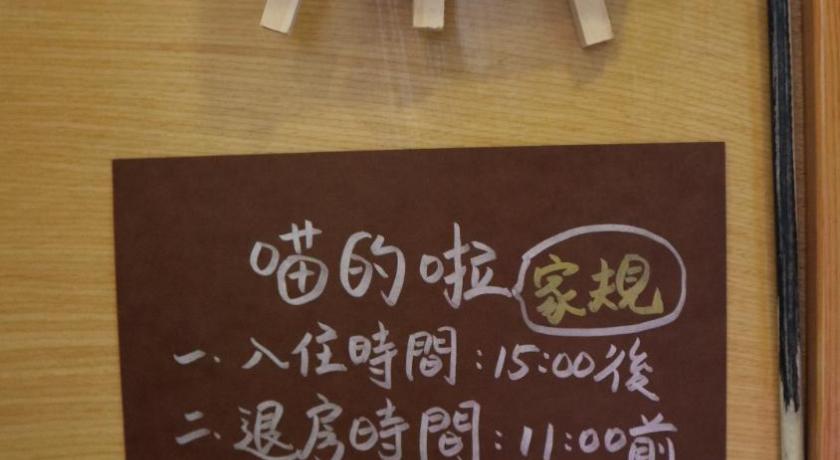 喵的啦家規
一、入住時間:15:00後
二、退房時間:11:00前